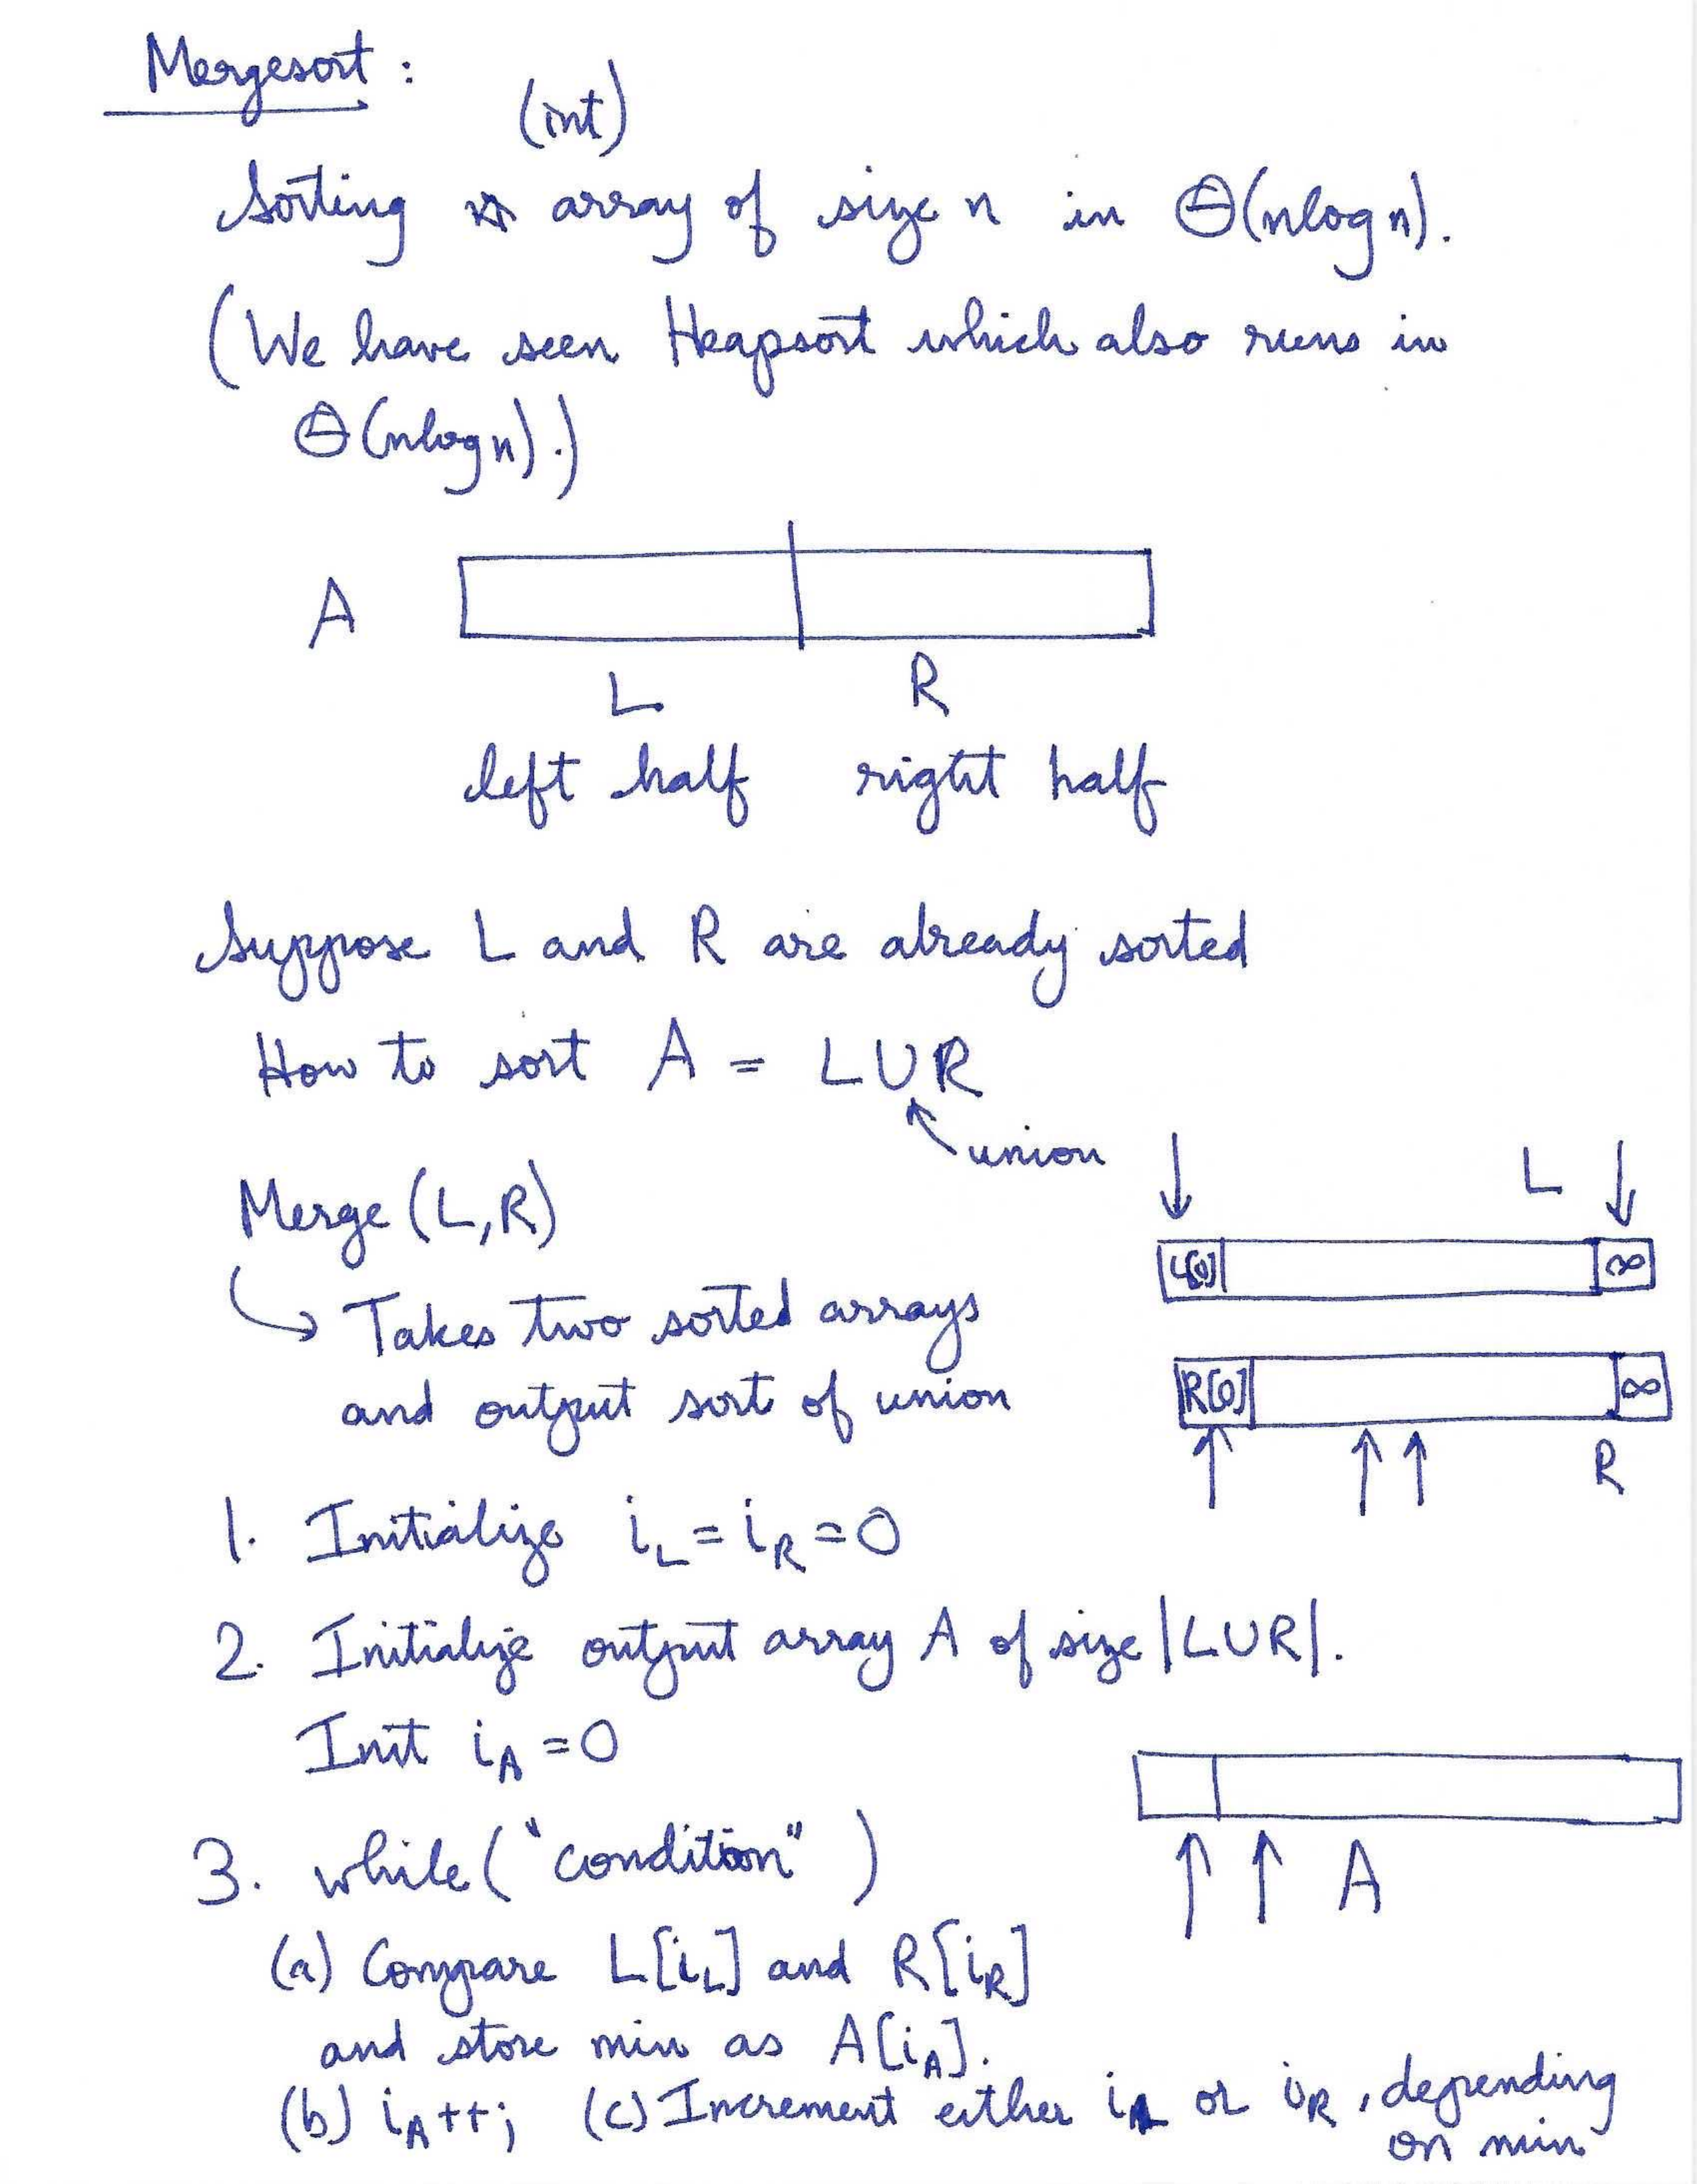 Mergesort :
(int)
Sorting array of size n in Θ(nlog n).
(We have seen Heapsort which also runs in
Θ(nlog n).)
A
L R
left half right half
Suppose L and R are already sorted
How to sort A = L∪R
union
Merge (L,R)
L
L[0] ∞
Takes two sorted arrays
R[0] ∞
and output sort of union
R
1. Initialize i_L = i_R = 0
2. Initialize output array A of size |L∪R|.
Init i_A = 0
3. while ("condition")
A
(a) Compare L[i_L] and R[i_R]
and store min as A[i_A].
(b) i_A++; (c) Increment either i_L or i_R, depending
on min